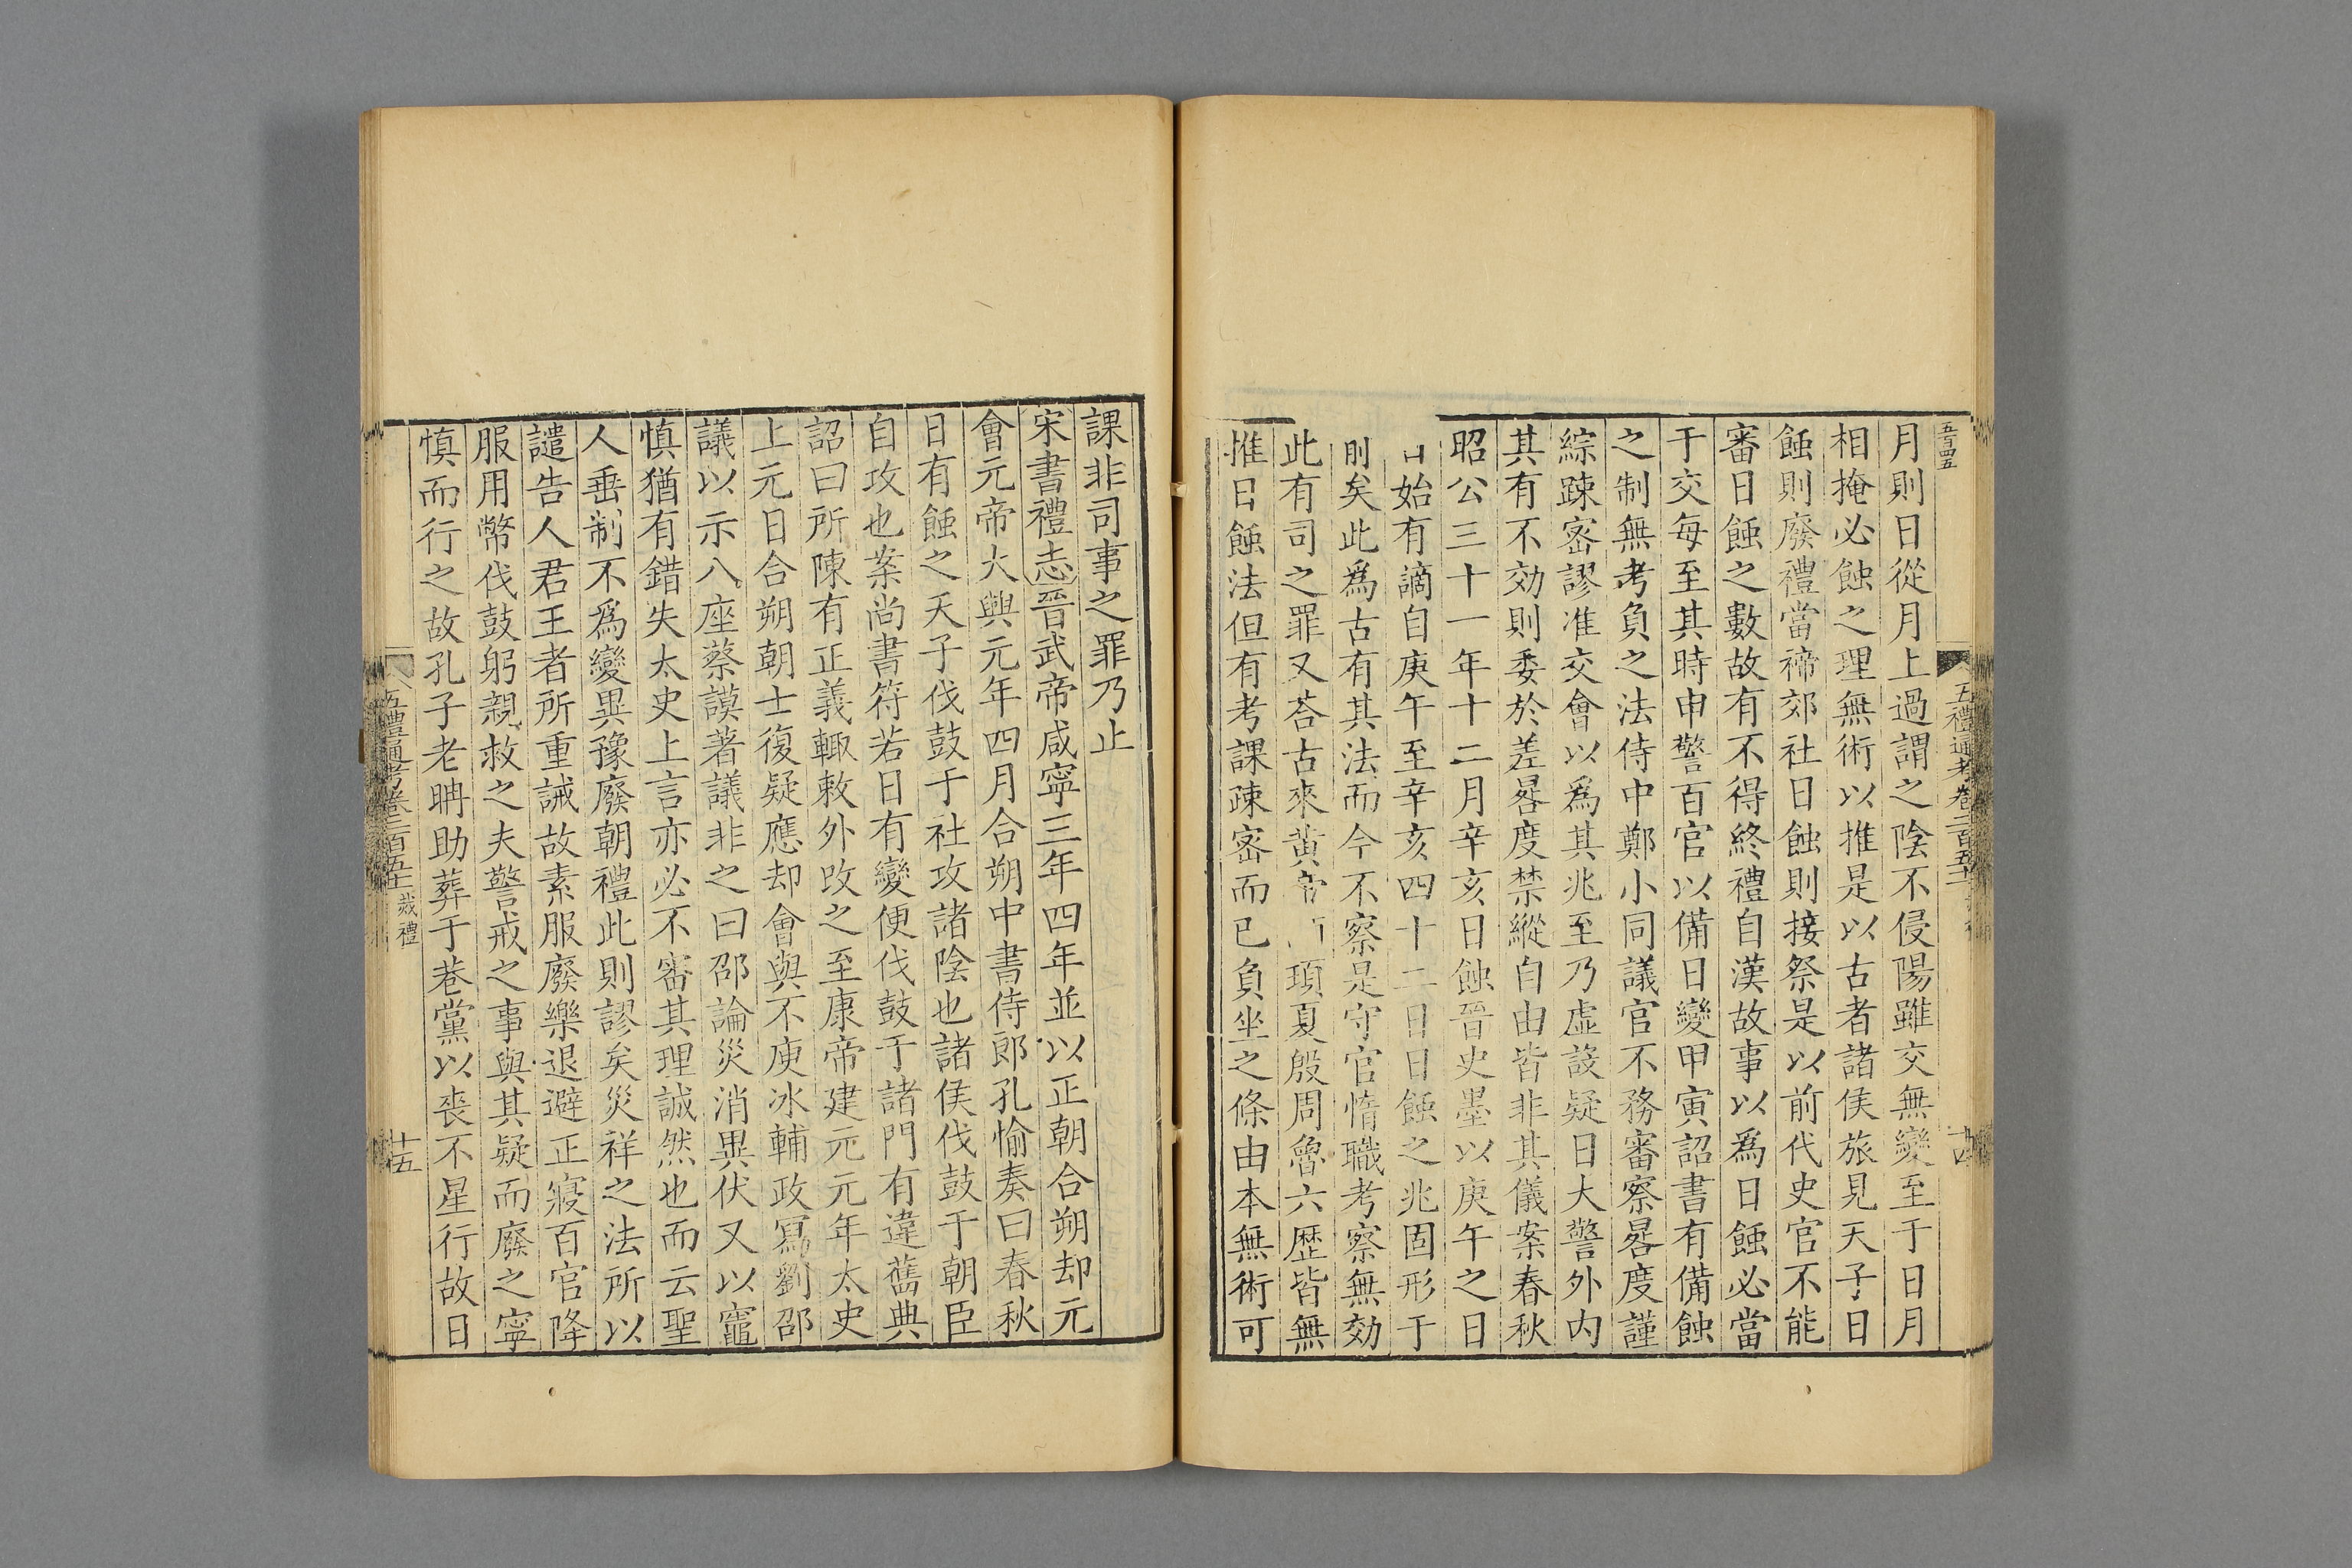 五百四五
五禮通考卷二百五十
月則日從月上過謂之陰不侵陽雖交無變至于日月
相掩必蝕之理無術以推是以古者諸侯旅見天子日
蝕則廢禮當禘郊社日蝕則接祭是以前代史官不能
審日蝕之數故有不得終禮自漢故事以爲日蝕必當
于交每至其時申警百官以備日變甲寅詔書有備蝕
之制無考負之法侍中鄭小同議官不務審察晷度謹
綜疎密謬准交會以爲其兆至乃虛設疑日大警外内
其有不効則委於差晷度禁縱自由皆非其儀案春秋
昭公三十一年十二月辛亥日蝕晉史墨以庚午之日
日始有謫自庚午至辛亥四十二日日蝕之兆固形于
前矣此爲古有其法而今不察是守官惰職考察無効
此有司之罪又荅古來黃帝頊夏殷周魯六歴皆無
推日蝕法但有考課疎密而已負坐之條由本無術可
課非司事之罪乃止
宋書禮志晉武帝咸寧三年四年並以正朝合朔却元
會元帝大興元年四月合朔中書侍郎孔愉奏曰春秋
日有蝕之天子伐鼓于社攻諸陰也諸侯伐鼓于朝臣
自攻也案尚書符若日有變便伐鼓于諸門有違舊典
詔曰所陳有正義輒敕外改之至康帝建元元年太史
上元日合朔朝士復疑應却會與不庾冰輔政寫劉邵
議以示八座蔡謨著議非之曰邵論災消異伏又以竈
慎猶有錯失太史上言亦必不審其理誠然也而云聖
人垂制不爲變異豫廢朝禮此則謬矣災祥之法所以
譴告人君王者所重誡故素服廢樂退避正寢百官降
服用幣伐鼓躬親救之夫警戒之事與其疑而廢之寧
慎而行之故孔子老聃助葬于巷黨以喪不星行故日
五禮通考卷二百五十 烖禮
十五